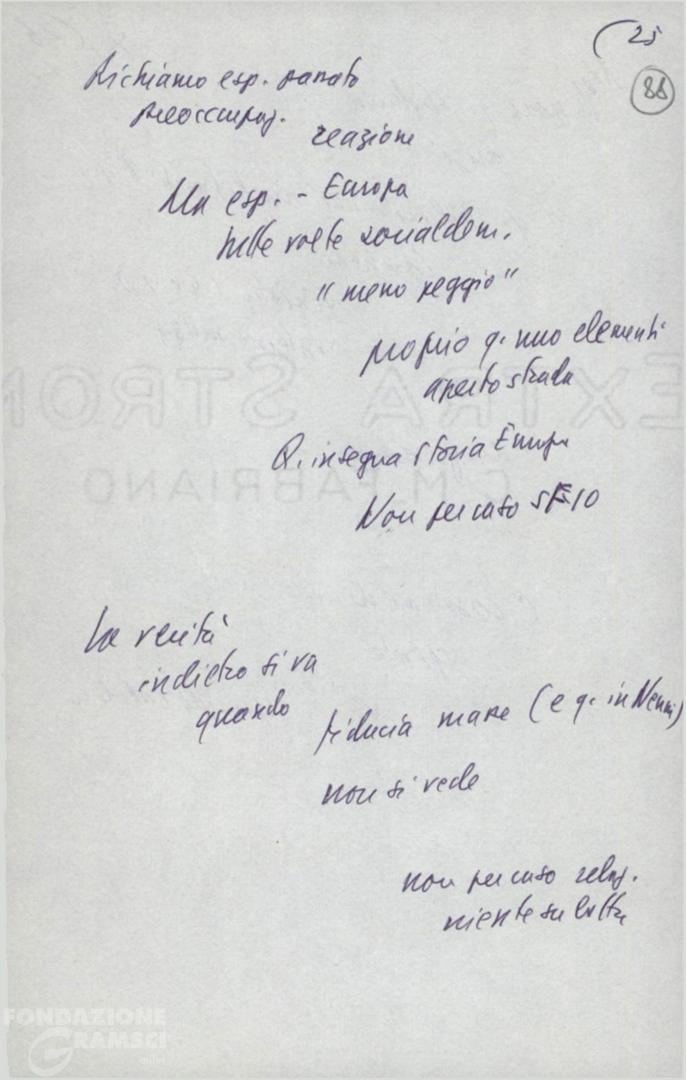 25
88
Richiamo esp. passato
preoccupaz.
reazione
Ma esp. - Europa
tutte volte socialdem.
"meno peggio"
proprio q. suo elementi
aperto strada
Q. insegna storia Europa
Non per caso SFIO
La verità
indietro si va
quando
fiducia masse (e q. in Nenni)
non si vede
non per caso relaz.
niente su lotte
EXTRA STRON
C.M. FABRIANO
FONDAZIONE
GRAMSCI